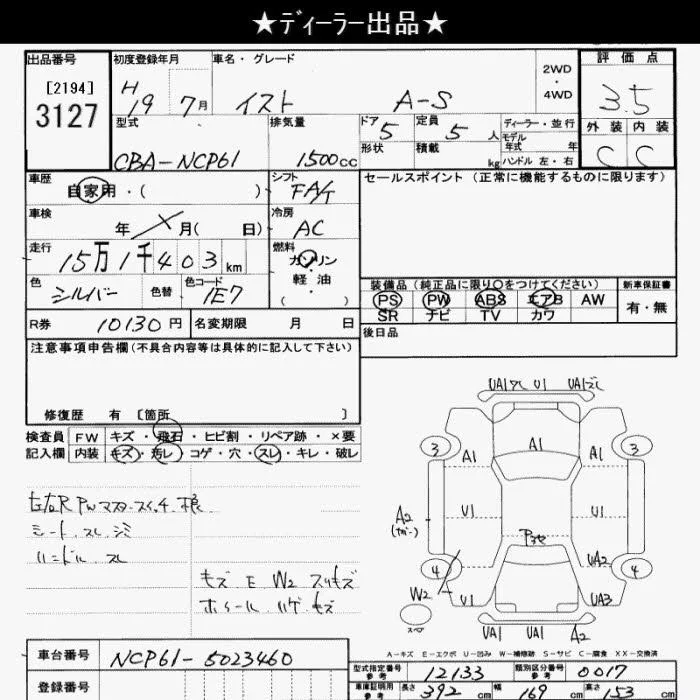 ★ディーラー出品★
出品番号
[2194]
3127
初度登録年月
H 19 7月
車名・グレード
イスト A-S
2WD
・
4WD
評価点
3.5
外装 内装
C C
型式
CBA-NCP61
排気量
1500cc
ドア
5
形状
定員
5人
積載
kg
ディーラー・並行
モデル
年式 年
ハンドル 左・右
車歴
自家用・( )
シフト
FA/T
車検
年 月( 日)
冷房
AC
走行
15万1千403km
燃料
ガソリン
・
軽油
( )
色
シルバー
色替
色コード
1E7
R券
10130円
名変期限 月 日
セールスポイント(正常に機能するものに限ります)
装備品(純正品に限り○をつけてください)
PS PW ABS エアB AW
SR ナビ TV カワ
新車保証書
有・無
後日品
注意事項申告欄(不具合内容等は具体的に記入して下さい)
修復歴 有〔箇所 〕
検査員
記入欄
FW キズ・飛石・ヒビ割・リペア跡・×要
内装 キズ・汚レ・コゲ・穴・スレ・キレ・破レ
右R PWマスタースイッチ
シート スレ シミ
ハンドル スレ
キズ E W2 スリキズ
ホイール ハゲ キズ
UA1 U1 UA1
3 A1 A1 3
A1
A2 U1 U1
4 UA2 4
W2
U1 UA3
スペア
UA1 UA1 A2
A-キズ E-エクボ U-凹み W-補修跡 S-サビ C-腐食 XX-交換済
車台番号
NCP61-5023460
登録番号
型式指定番号
参考
12133
類別区分番号
参考
0017
車庫証明用
参考
長さ 392cm
幅 169cm
高さ 153cm